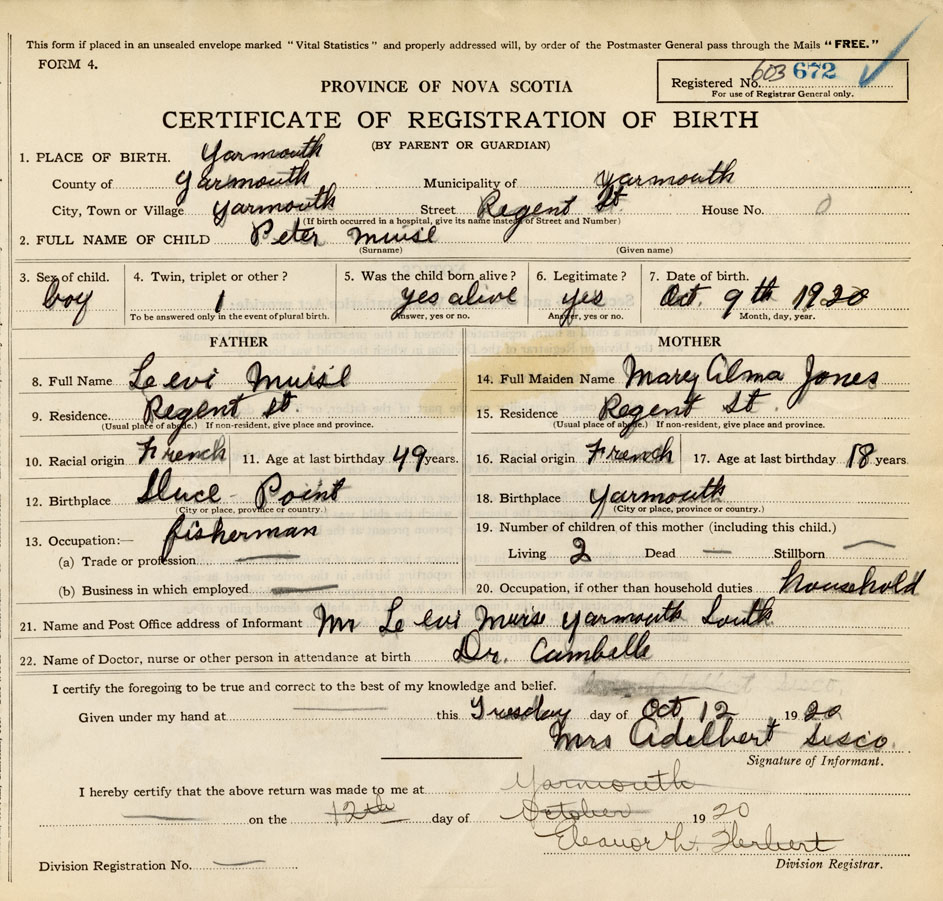 This form if placed in an unsealed envelope marked "Vital Statistics" and properly addressed will, by order of the Postmaster General pass through the Mails "FREE."
FORM 4.
Registered No. 603 672
For use of Registrar General only.
PROVINCE OF NOVA SCOTIA
CERTIFICATE OF REGISTRATION OF BIRTH
(BY PARENT OR GUARDIAN)
1. PLACE OF BIRTH. Yarmouth
County of Yarmouth Municipality of Yarmouth
City, Town or Village Yarmouth Street Regent St. House No. 0
(If birth occurred in a hospital, give its name instead of Street and Number)
2. FULL NAME OF CHILD Peter Muise
(Surname) (Given name)
3. Sex of child. 4. Twin, triplet or other? 5. Was the child born alive? 6. Legitimate? 7. Date of birth.
boy 1 yes alive yes Oct. 9th 1920
To be answered only in the event of plural birth. Answer, yes or no. Answer, yes or no. Month, day, year.
FATHER MOTHER
8. Full Name Le evi Muise 14. Full Maiden Name Mary Alma Jones
9. Residence. Regent St. 15. Residence Regent St.
(Usual place of abode.) If non-resident, give place and province. (Usual place of abode.) If non-resident, give place and province.
10. Racial origin French 11. Age at last birthday 49 years. 16. Racial origin French 17. Age at last birthday 18 years
12. Birthplace Sluce Point 18. Birthplace Yarmouth
(City or place, province or country.) (City or place, province or country.)
13. Occupation:— fisherman 19. Number of children of this mother (including this child.)
(a) Trade or profession Living 2 Dead — Stillborn —
(b) Business in which employed 20. Occupation, if other than household duties household
21. Name and Post Office address of Informant Mr Le evi Muise Yarmouth South
22. Name of Doctor, nurse or other person in attendance at birth Dr. Cambell
I certify the foregoing to be true and correct to the best of my knowledge and belief.
Given under my hand at this Tuesday day of Oct 12 1920
Mrs Adelbert Sisco.
Signature of Informant.
I hereby certify that the above return was made to me at Yarmouth
on the 12th day of October 1920
Eleanor L. Herbert
Division Registration No. Division Registrar.